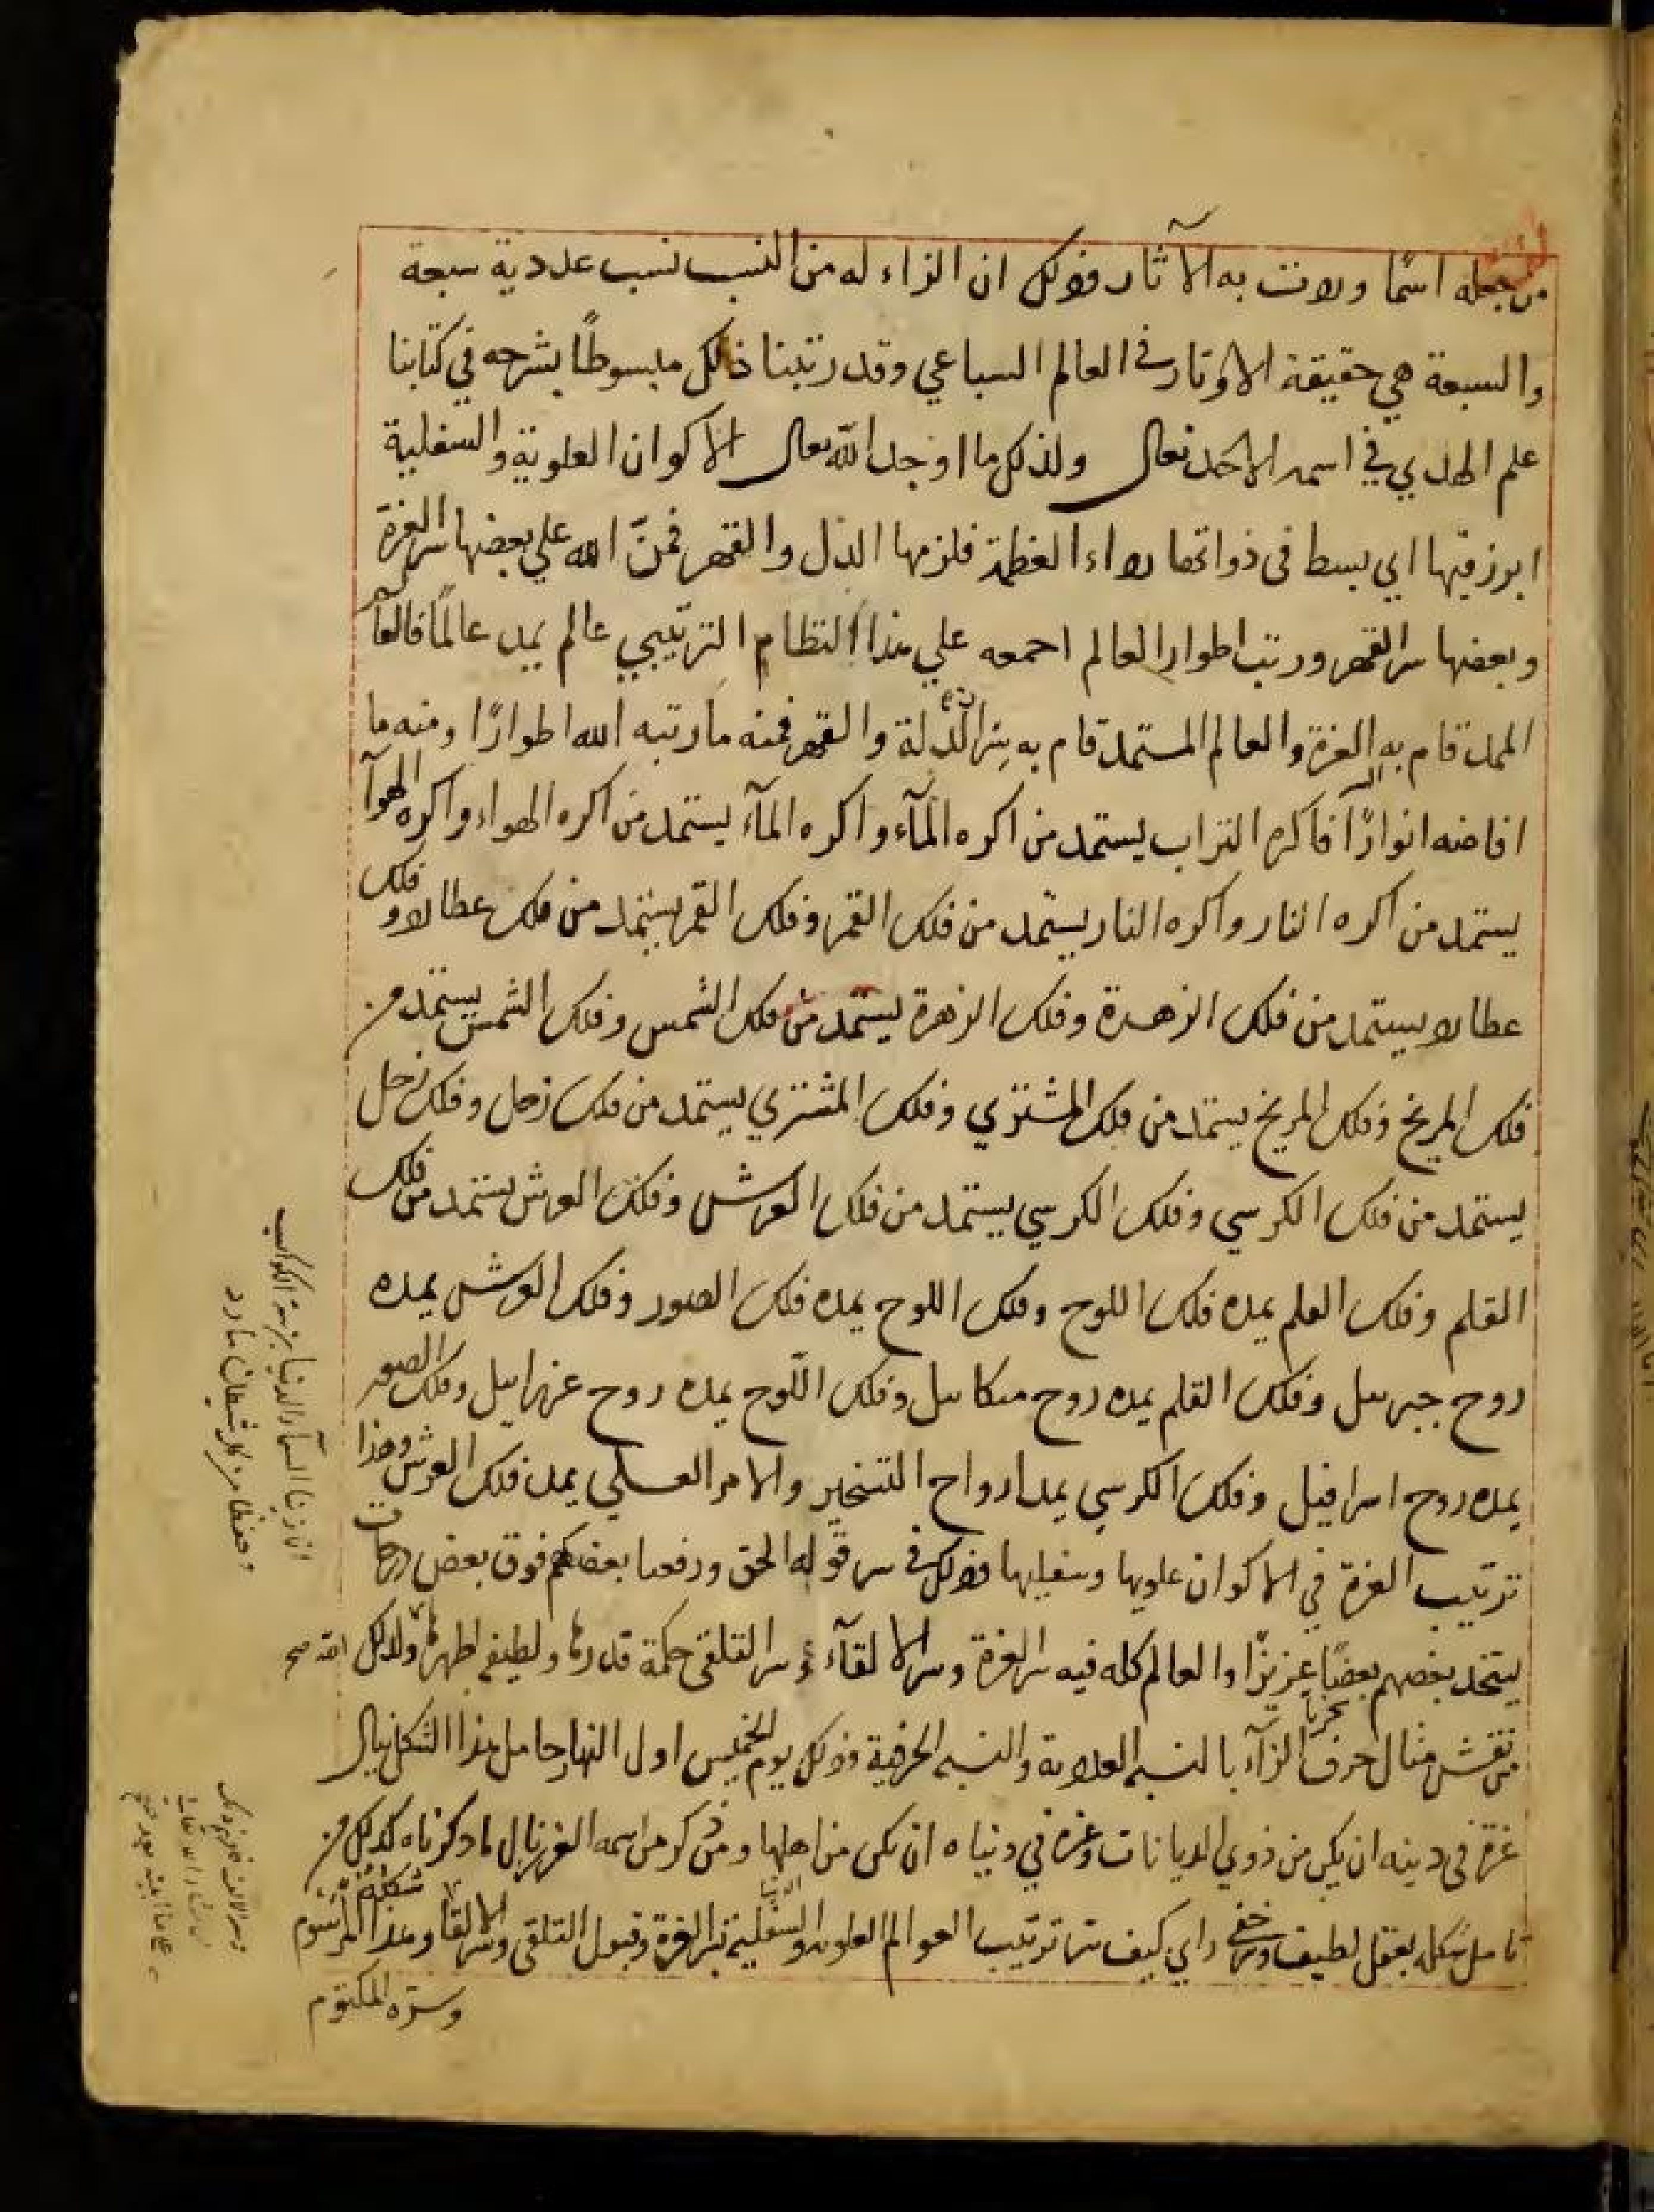 من جعله اسمًا وردت به الآثار وذلك ان الزاء له من النسب نسب عددية سبعة
والسبعة هي حقيقة الاوتار في العالم السباعي وقد رتبنا ذلك مبسوطًا بشرحه في كتابنا
علم الهدي في اسمه الاحد تعالى ولذلك ما اوجد الله تعالى الاكوان العلوية والسفلية
ابرز فيها اي بسط في ذواتها رداء العظمة فلزمها الذل والقهر فمنّ الله علي بعضها سر العزة
وبعضها سر القهر ورتب اطوار العالم اجمعه علي هذا النظام الترتيبي عالم يمد عالمًا فالعا
الممد قام به العزة والعالم المستمد قام به سر الذلة والقهر فمنه ما رتبه الله اطوارًا ومنه ما
افاضه انوارًا فاكره التراب يستمد من اكره المآء واكره المآء يستمد من اكره الهواء واكره الهوآ
يستمد من اكره النار واكره النار يستمد من فلك القمر وفلك القمر يستمد من فلك عطارد وفلك
عطارد يستمد من فلك الزهرة وفلك الزهرة يستمد من فلك الشمس وفلك الشمس يستمد من
فلك المريخ وفلك المريخ يستمد من فلك المشتري وفلك المشتري يستمد من فلك زحل وفلك زحل
يستمد من فلك الكرسي وفلك الكرسي يستمد من فلك العرش وفلك العرش يستمد من فلك
القلم وفلك القلم يمده فلك اللوح وفلك اللوح يمده فلك الصور وفلك العرش يمده
روح جبريل وفلك القلم يمده روح ميكاييل وفلك اللّوح يمده روح عزراييل وفلك الصور
يمده روح اسرافيل وفلك الكرسي يمد ارواح التسخير والامر العلي يمد فلك العرش وهذا
ترتيب العزة في الاكوان علويها وسفليها وذلك في سر قوله الحق ورفعنا بعضكم فوق بعض درجات
يتخذ بعضهم بعضًا سخريا عزيزًا والعالم كله فيه سر العزة وسر الالقآء وسر التلقي حكمة قدرها ولطيفة اظهرها ولذلك
من نقش مثال حرف الزآء بالنسب العددية والنسب الحرفية وذلك يوم الخميس اول النهار حامل هذا الشكل ينال
عزة في دينه ان يكن من ذوي الديانات وعزة في دنياه ان يكن من اهلها ومن ذكر من اسمه العزيز نال ما ذكرناه كذلك من
تامل شكله بعقل لطيف وسر خفي راي كيف سر ترتيب العوالم العلويه والسفلية بسر العزة وقبول التلقي وسر الالقا وهذا شكله المرسوم
وسرّه المكتوم
انا زينا السمآء الدنيا بزينة الكواكب
وحفظا من كل شيطان مارد